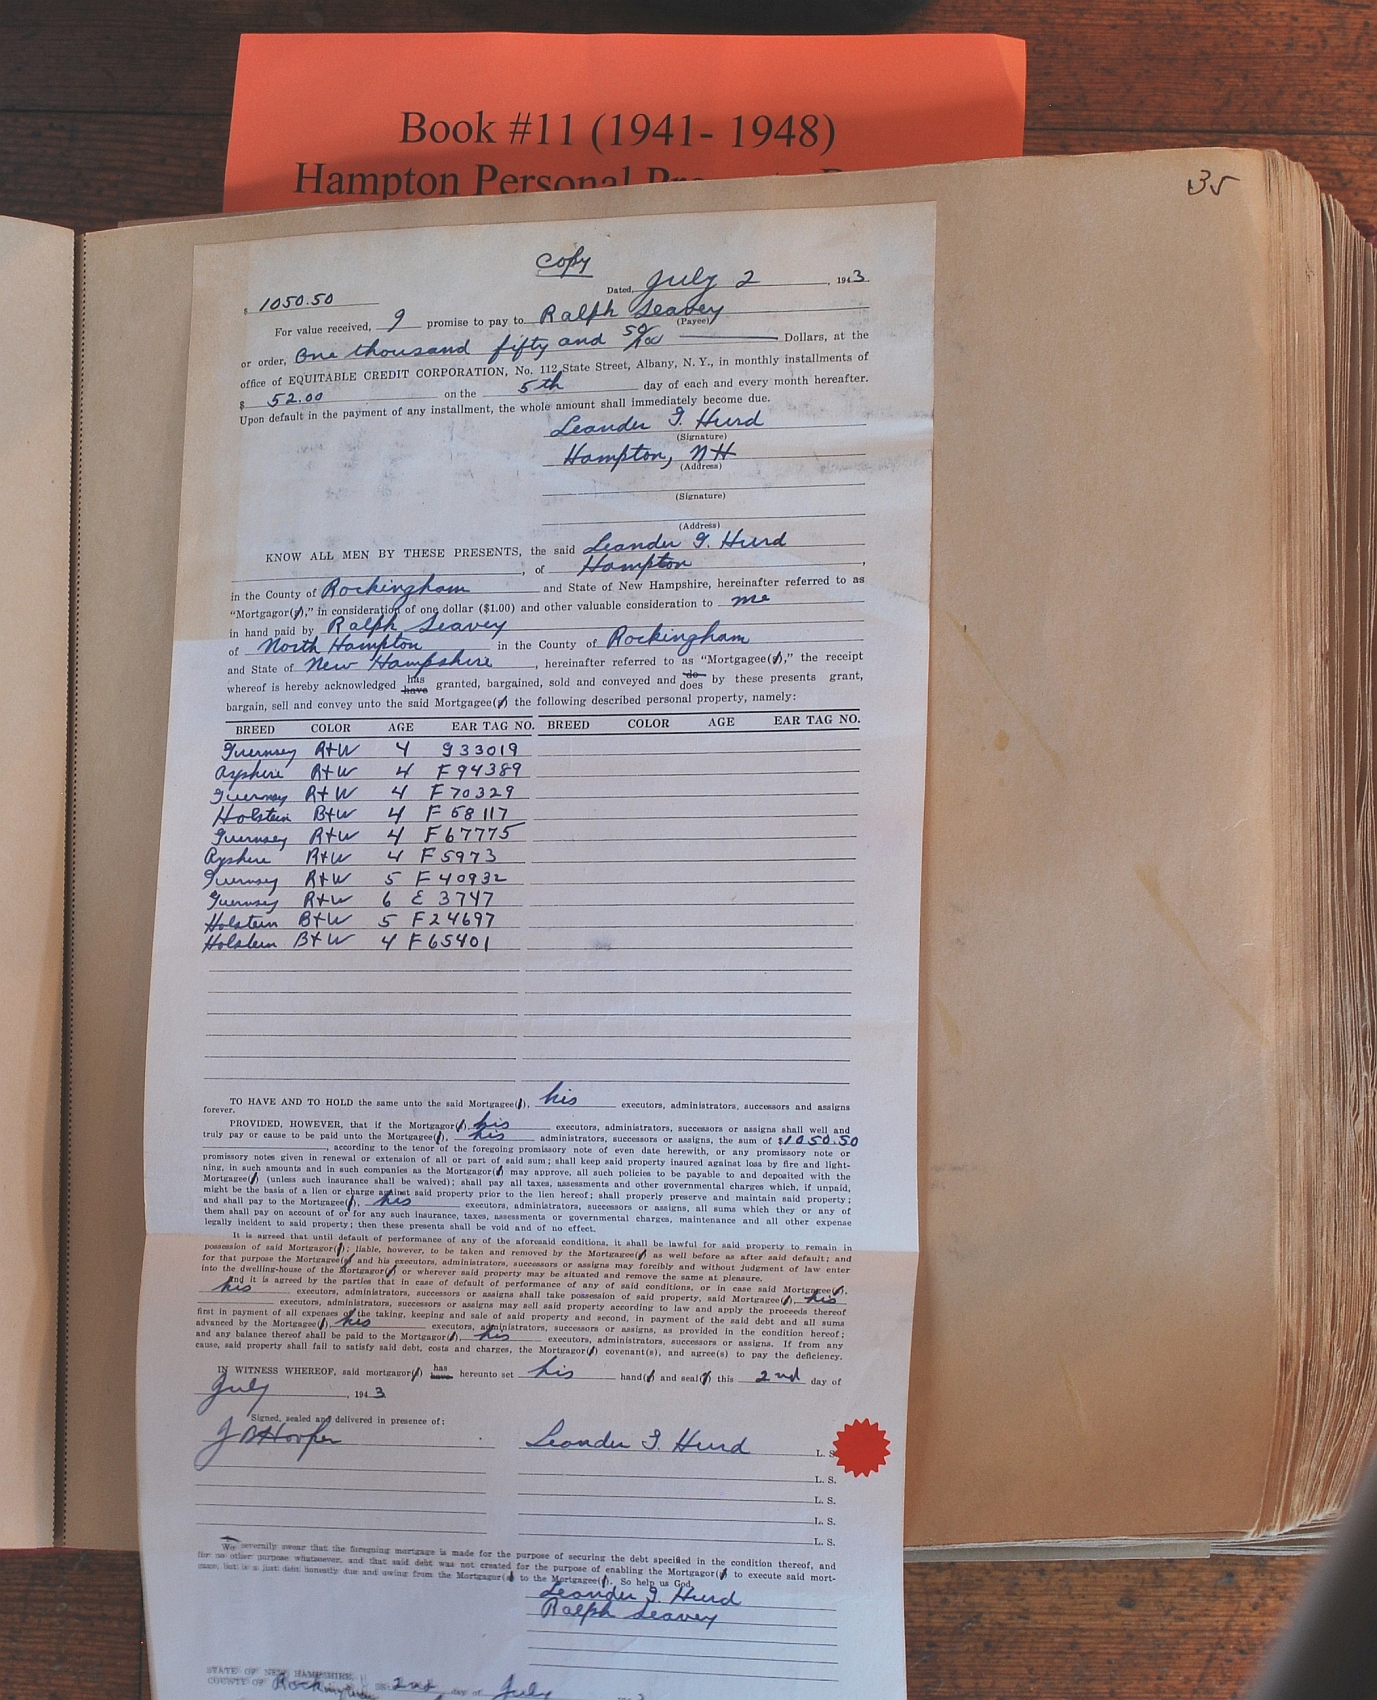 Book #11 (1941- 1948)
Hampton Personal
35
Copy
Dated, July 2, 1943
$ 1050.50
For value received, I promise to pay to Ralph Seavey
(Payee)
or order, One thousand fifty and 50/100 Dollars, at the
office of EQUITABLE CREDIT CORPORATION, No. 112 State Street, Albany, N. Y., in monthly installments of
$ 52.00 on the 5th day of each and every month hereafter.
Upon default in the payment of any installment, the whole amount shall immediately become due.
Leander I. Hurd
(Signature)
Hampton, NH
(Address)
(Signature)
(Address)
KNOW ALL MEN BY THESE PRESENTS, the said Leander I. Hurd
, of Hampton,
in the County of Rockingham and State of New Hampshire, hereinafter referred to as
"Mortgagor(s)," in consideration of one dollar ($1.00) and other valuable consideration to me
in hand paid by Ralph Seavey
of North Hampton in the County of Rockingham
and State of New Hampshire, hereinafter referred to as "Mortgagee(s)," the receipt
whereof is hereby acknowledged has have granted, bargained, sold and conveyed and do does by these presents grant,
bargain, sell and convey unto the said Mortgagee(s) the following described personal property, namely:
BREED COLOR AGE EAR TAG NO. BREED COLOR AGE EAR TAG NO.
Guernsey R+W 4 933019
Ayshire R+W 4 F94389
Guernsey R+W 4 F70329
Holstein B+W 4 F58117
Guernsey R+W 4 F67775
Ayshire R+W 4 F5973
Guernsey R+W 5 F40932
Guernsey R+W 6 E3747
Holstein B+W 5 F24697
Holstein B+W 4 F65401
TO HAVE AND TO HOLD the same unto the said Mortgagee(s), his executors, administrators, successors and assigns
forever.
PROVIDED, HOWEVER, that if the Mortgagor(s), his executors, administrators, successors or assigns shall well and
truly pay or cause to be paid unto the Mortgagee(s), his administrators, successors or assigns, the sum of $1050.50
, according to the tenor of the foregoing promissory note of even date herewith, or any promissory note or
promissory notes given in renewal or extension of all or part of said sum; shall keep said property insured against loss by fire and light-
ning, in such amounts and in such companies as the Mortgagor(s) may approve, all such policies to be payable to and deposited with the
Mortgagee(s) (unless such insurance shall be waived); shall pay all taxes, assessments and other governmental charges which, if unpaid,
might be the basis of a lien or charge against said property prior to the lien hereof; shall properly preserve and maintain said property;
and shall pay to the Mortgagee(s), his executors, administrators, successors or assigns, all sums which they or any of
them shall pay on account of or for any such insurance, taxes, assessments or governmental charges, maintenance and all other expense
legally incident to said property; then these presents shall be void and of no effect.
It is agreed that until default of performance of any of the aforesaid conditions, it shall be lawful for said property to remain in
possession of said Mortgagor(s); liable, however, to be taken and removed by the Mortgagee(s) as well before as after said default; and
for that purpose the Mortgagee(s) and his executors, administrators, successors or assigns may forcibly and without judgment of law enter
into the dwelling-house of the Mortgagor(s) or wherever said property may be situated and remove the same at pleasure.
And it is agreed by the parties that in case of default of performance of any of said conditions, or in case said Mortgagee(s),
his executors, administrators, successors or assigns shall take possession of said property, said Mortgagee(s), his
executors, administrators, successors or assigns may sell said property according to law and apply the proceeds thereof
first in payment of all expenses of the taking, keeping and sale of said property and second, in payment of the said debt and all sums
advanced by the Mortgagee(s), his executors, administrators, successors or assigns, as provided in the condition hereof;
and any balance thereof shall be paid to the Mortgagor(s), his executors, administrators, successors or assigns. If from any
cause, said property shall fail to satisfy said debt, costs and charges, the Mortgagor(s) covenant(s), and agree(s) to pay the deficiency.
IN WITNESS WHEREOF, said mortgagor(s) has have hereunto set his hand(s) and seal(s) this 2nd day of
July, 1943
Signed, sealed and delivered in presence of:
J B Hooper Leander I. Hurd L. S.
L. S.
L. S.
L. S.
L. S.
We severally swear that the foregoing mortgage is made for the purpose of securing the debt specified in the condition thereof, and
for no other purpose whatsoever, and that said debt was not created for the purpose of enabling the Mortgagor(s) to execute said mort-
gage, but is a just debt honestly due and owing from the Mortgagor(s) to the Mortgagee(s). So help us God.
Leander I. Hurd
Ralph Seavey
STATE OF NEW HAMPSHIRE,
COUNTY OF Rockingham SS. 2nd day of July